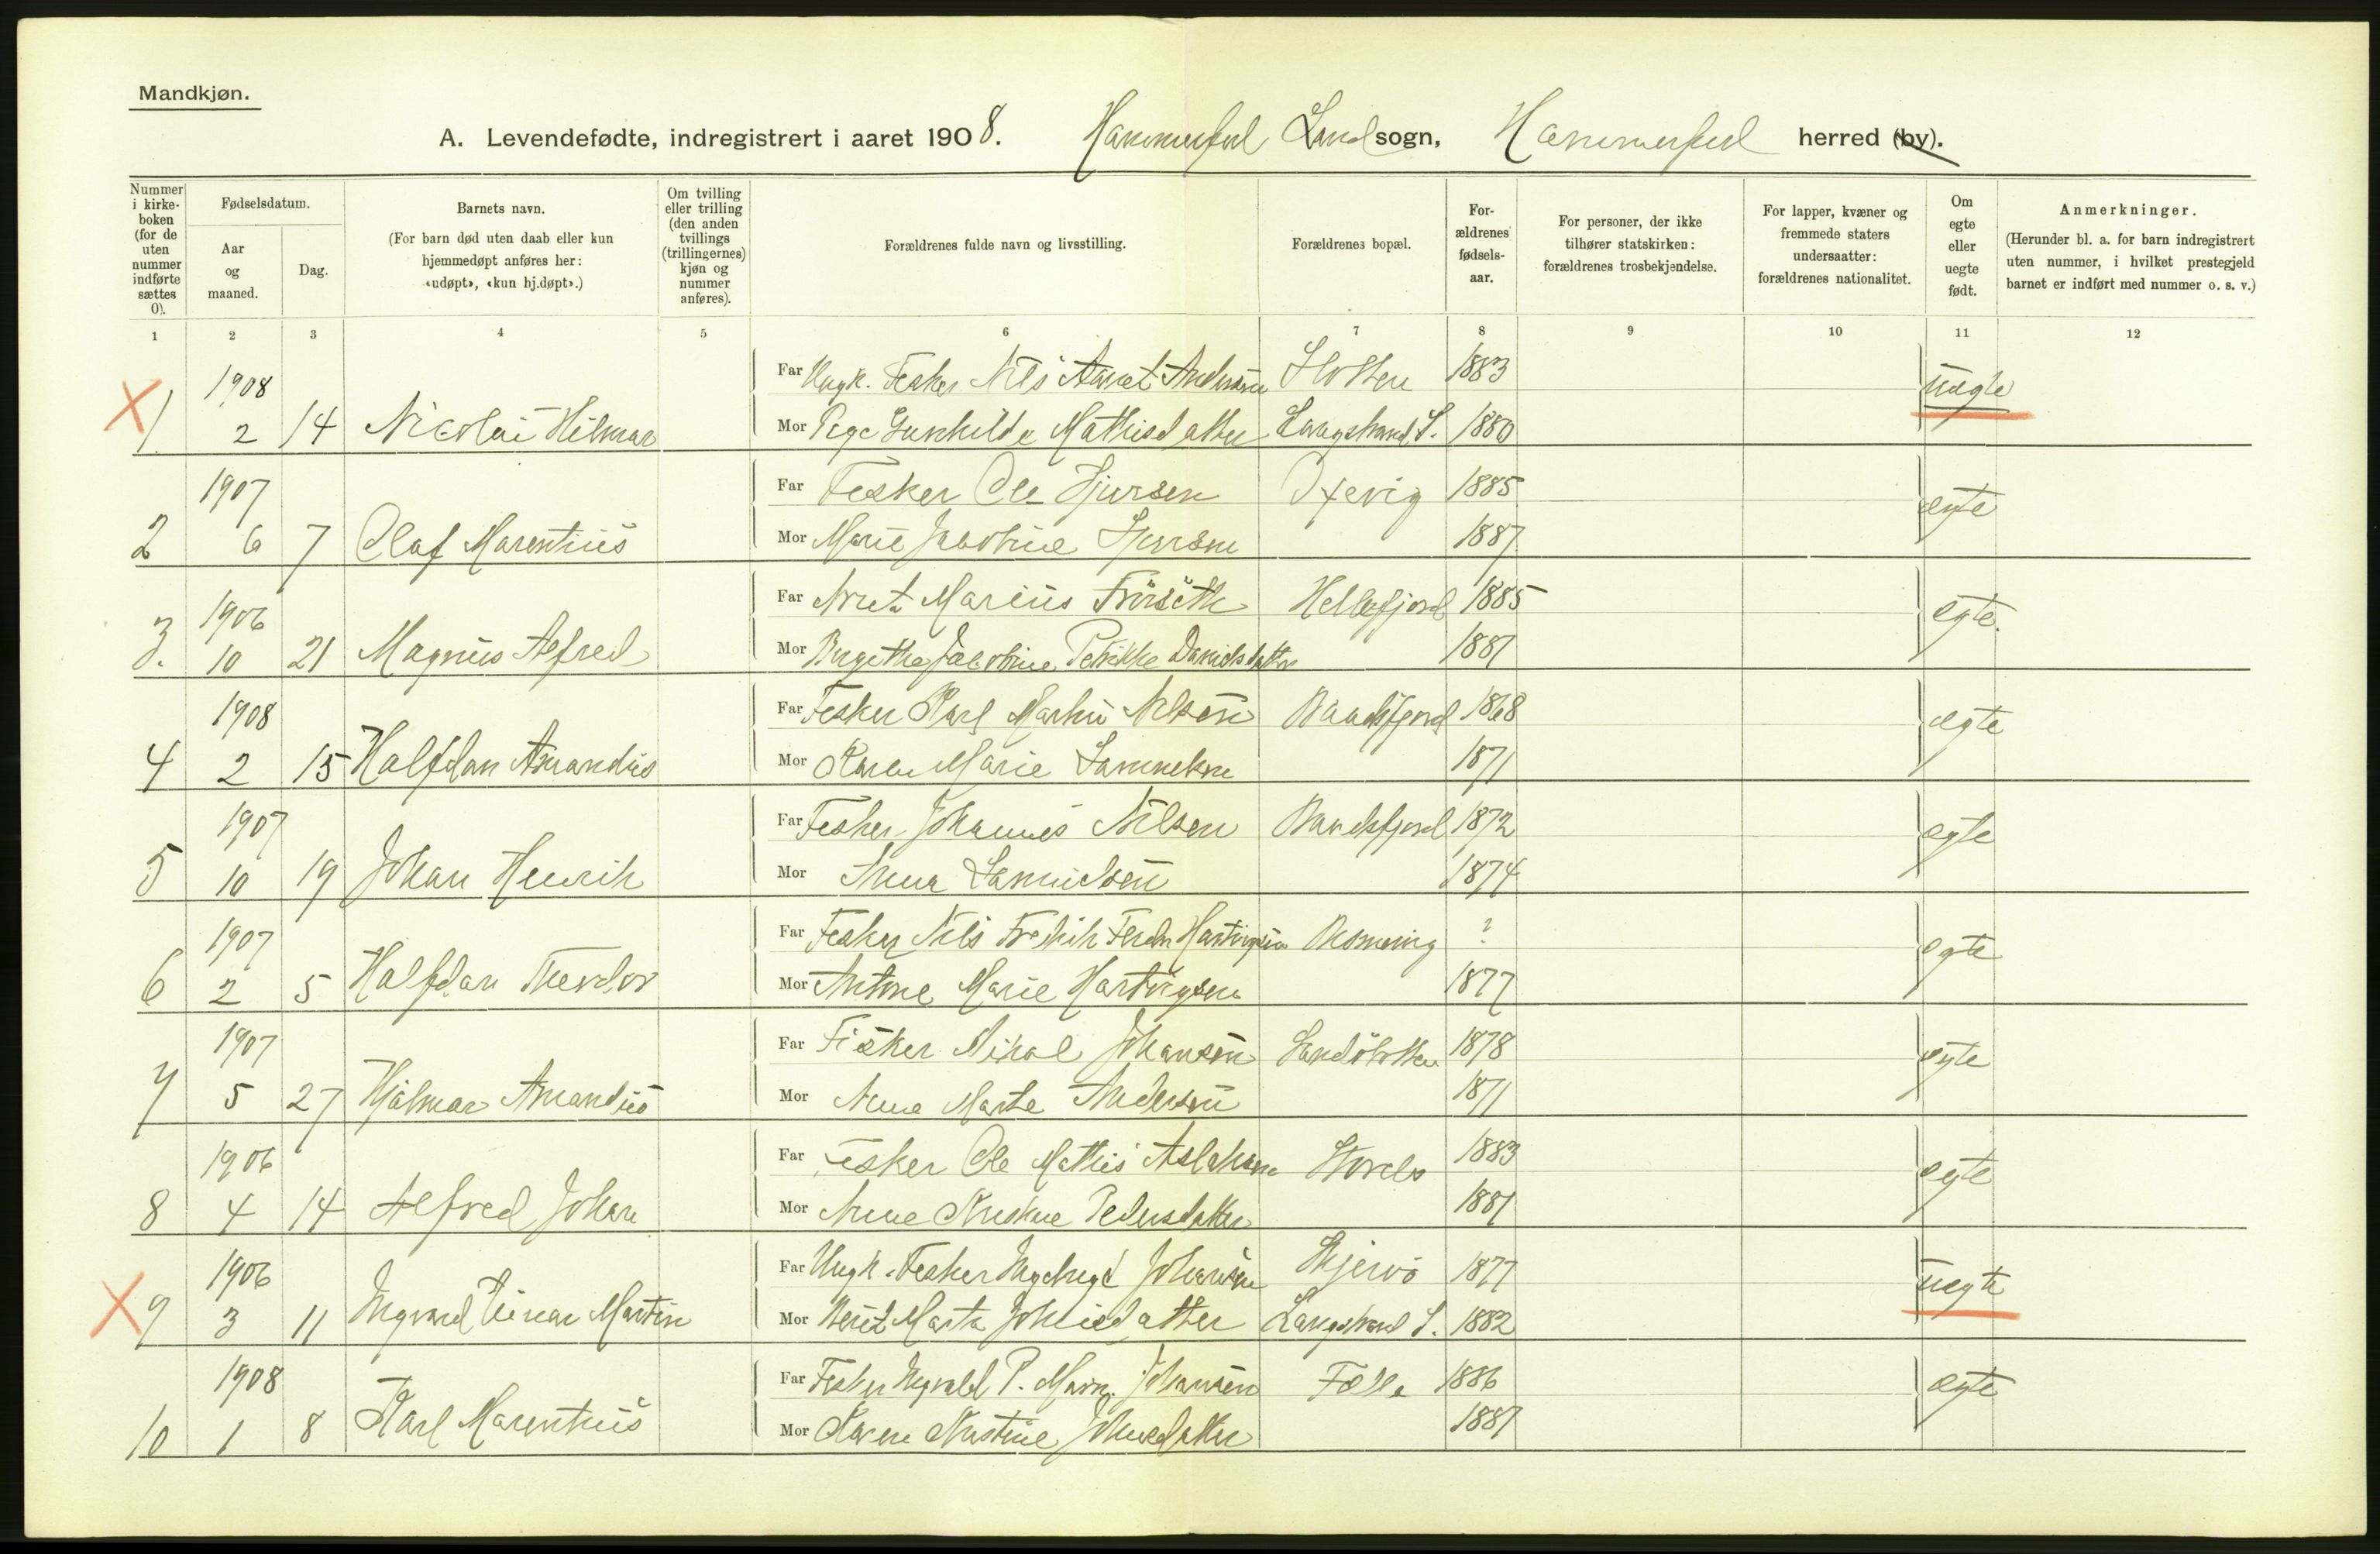 Mandkjøn.
A. Levendefødte, indregistrert i aaret 1908. Hammerfest Landsogn, Hammerfest herred (by).
Nummer i kirkeboken (for de uten nummer indførte sættes 0).
Fødselsdatum.
Aar og maaned.
Dag.
Barnets navn.
(For barn død uten daab eller kun hjemmedøpt anføres her: «udøpt», «kun hj.døpt».)
Om tvilling eller trilling (den anden tvillings (trillingernes) kjøn og nummer anføres).
Forældrenes fulde navn og livsstilling.
Forældrenes bopæl.
Forældrenes fødselsaar.
For personer, der ikke tilhører statskirken: forældrenes trosbekjendelse.
For lapper, kvæner og fremmede staters undersaatter: forældrenes nationalitet.
Om egte eller uegte født.
Anmerkninger.
(Herunder bl. a. for barn indregistrert uten nummer, i hvilket prestegjeld barnet er indført med nummer o. s. v.)
1 2 3 4 5 6 7 8 9 10 11 12
1908 Far Ungk. Fisker Nils Anders Slotten 1883 uegte
1 2 14 Nicolai Hilmar Mor Pige Gunhilde Mathisdatter Langstrand S. 1880
1907 Far Fisker Ole Hjursen 1885 egte
2 6 7 Olaf Marentius Mor Marie Jakobine 1887
1906 Far Marius Hellefjord 1885 egte.
3. 10 21 Magnus Alfred Mor Birgithe Jakobine Petrikke Davidsdatter 1881
1908 Far Fisker Karl Martin Nilsen Baadsfjord 1868 egte
4 2 15 Halfdan Amandus Mor Karen Marie Samuelsen 1871
1907 Far Fisker Johannes Nilsen Baadsfjord 1872 egte
5 10 19 Johan Henrik Mor Anna Samuelsen 1874
1907 Far Fisker Nils Fredrik Ferdn Hartvigsen ? egte
6 2 5 Halfdan Theodor Mor Antone Marie Hartvigsen 1877
1907 Far Fisker Mikal Johansen Sandslotten 1878 egte
7 5 27 Hjalmar Amandus Mor Anne Marte Andersen 1871
1906 Far Fisker Ole Mathis Aslaksen 1883 egte
8 4 14 Alfred Johan Mor Anne Kristine Pedersdatter 1881
1906 Far Ungk. Fisker Johansen Skjervø 1877 uegte
9 3 11 Ingvard Einar Martin Mor Berit Marta Johnsdatter Langstrand S. 1882
1908 Far Fisker Ingvald P. Mari. Johansen 1886 egte
10 1 8 Karl Marentius Mor Karen Kristine Johnsdatter 1887